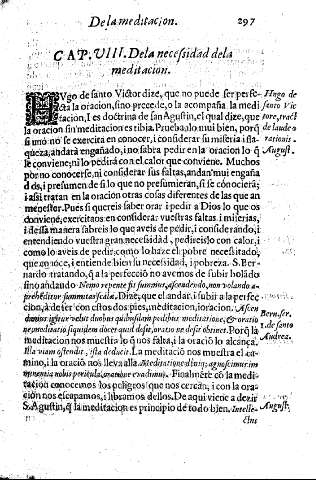 De la meditacion. 297
CAP. VIII. De la necessidad de la
meditacion.
HVgo de santo Victor dize, que no puede ser perfe-
cta la oracion, sino precede, o la acompaña la medi-
tacion, I es doctrina de san Agustin, el qual dize, que
la oracion sin meditacion es tibia. Prueba lo mui bien, porq̃
si uno no se exercita en conocer, i considerar su miseria i fla-
queza, andará engañado, i no sabra pedir en la oracion lo q̃
le conviene; ni lo pedirá con el calor que conviene. Muchos
por no conocerse, ni considerar sus faltas, andan mui engaña
dos, i presumen de si lo que no presumieran, si se conociera;
i assi tratan en la oracion otras cosas diferentes de las que an
menester. Pues si quereis saber orar i pedir a Dios lo que os
conviene, exercitaos en considerar vuestras faltas i miserias,
i dessa manera sabreis lo que aveis de pedir, i considerando, i
entendiendo vuestra gran necessidad, pedireislo con calor, i
como lo aveis de pedir; como lo haze el pobre necessitado;
que conoce, i entiende bien su necessidad, i pobreza. S. Ber-
nardo tratando, q̃ a la perfeccio no avemos de subir bolādo
sino andando Nemo repente fit summus, ascendendo, non volando a-
prehēditur summitas scalæ. Dize, que el andar, i subir a la perfec-
cion, à de ser con estos dos pies, meditacion, i oracion. Ascen
damus igitur velut duobus quibusdam pedibus meditatione, & oratio
ne, meditatio siquidem docet quid desit, oratio ne desit obtinet. Porq̃ la
meditacion nos muestra lo q̃ nos falta, i la oracio lo alcança.
Illa viam ostendit, ista deducit. La meditació nos muestra el ca-
mino, i la oracio nos lleva alla. Meditatione deniq; agnoscimus im
minentia nobis pericula, oratione evadimus. Finalmēte cō la medi-
tacion conocemos los peligros que nos cercan, i con la ora-
ciō nos escapamos, i libramos dellos. De aqui viene a dezir
S. Agustin, q̃ la meditacion es principio de todo bien. Intelle-
ctus
Hugo de
santo Vic
tore, tract.
de laude o
rationis.
August.
Bern. ser.
1. de santo
Andrez.
August.